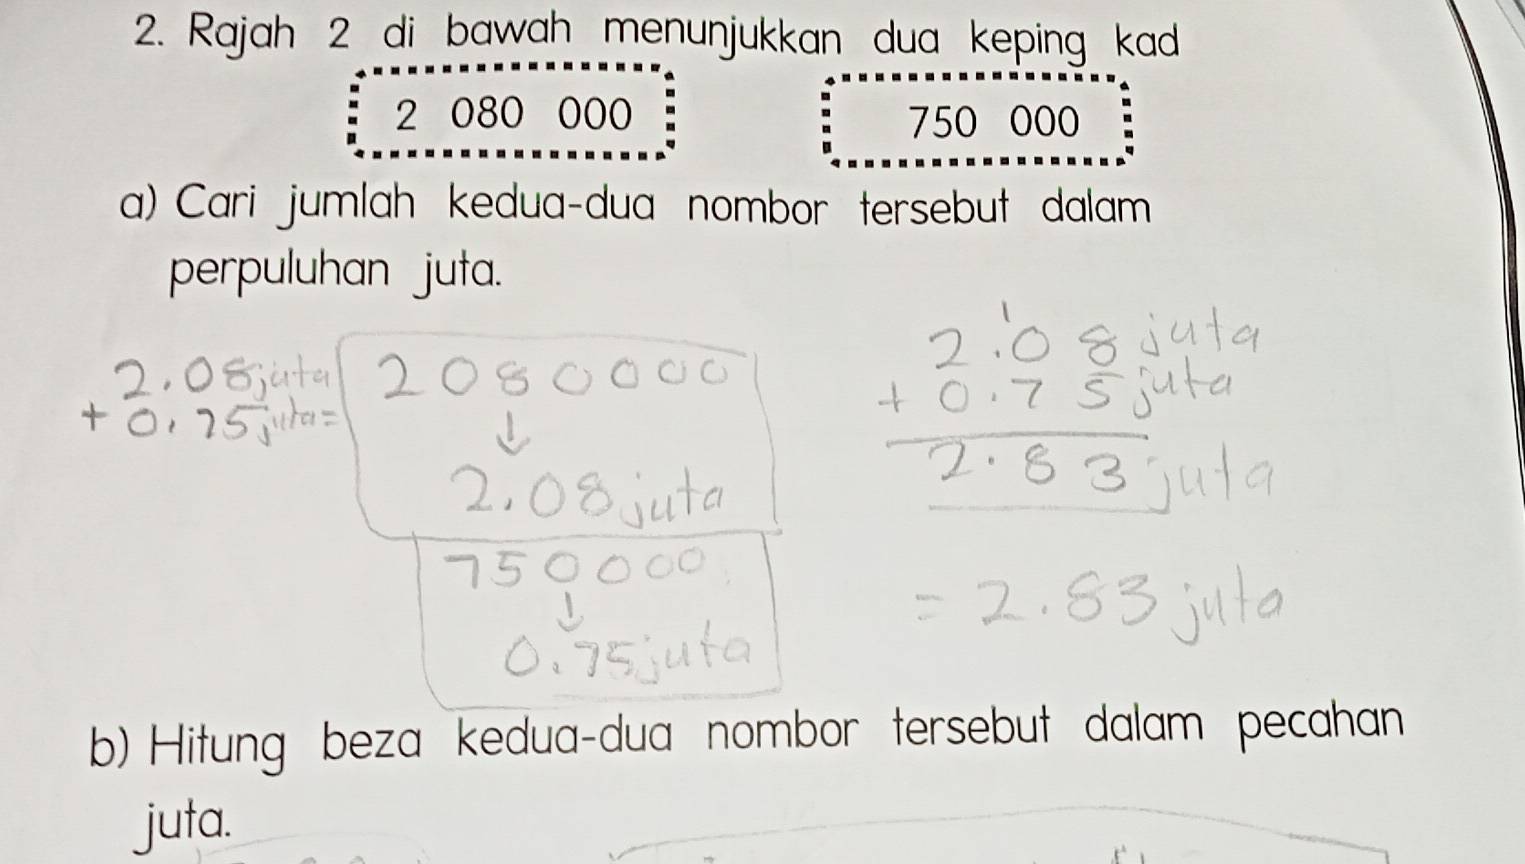 2. Rajah 2 di bawah menunjukkan dua keping kad
2 080 000 750 000
a) Cari jumlah kedua-dua nombor tersebut dalam
perpuluhan juta.
2.08 juta
+ 0.75 juta =
2080000
↓
2.08 juta
750000
↓
0.75 juta
1
2.08 juta
+ 0.75 juta
2.83 juta
= 2.83 juta
b) Hitung beza kedua-dua nombor tersebut dalam pecahan
juta.